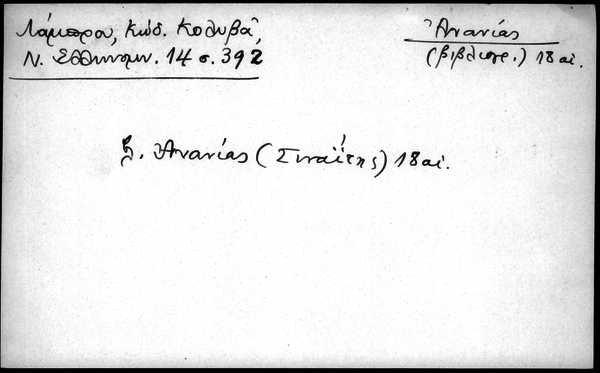 Λάμπρου, Κώδ. Κολυβᾶ,
Ν. Ἑλληνομν. 14 σ. 392
Ἀνανίας
(βιβλιογρ.) 18 αἰ.
Ἀνανίας (Σιναΐτης) 18 αἰ.